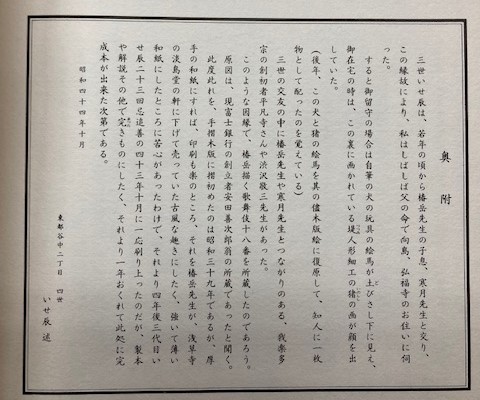 奥附
三世いせ辰は、若年の頃から椿岳先生の子息、寒月先生と交り、
この縁故により、私はしばしば父の命で向島、弘福寺のお住いに伺
った。
すると御留守の場合は自筆の犬の玩具の絵馬が土びさし下に見え、
御在宅の時は、この裏に画かれている堤人形細工の猪の画が顔を出
していた。
(後年、この犬と猪の絵馬を其の儘木版絵に復原して、知人に一枚
物として配ったのを覚えている)
三世の交友の中に椿岳先生や寒月先生とつながりのある、我楽多
宗の創初者平凡寺さんや渋沢敬三先生があった。
このような因縁で、椿岳描く歌舞伎十八番を所蔵したのであろう。
原図は、現富士銀行の創立者安田善次郎翁の所蔵であったと聞く。
此度此れを、手摺木版に摺初めたのは昭和三十九年であるが、厚
手の和紙にすれば、印刷も楽のところ、それを椿岳先生が、浅草寺
の淡島堂の軒に下げて売っていた古風な趣きにしたく、強いて薄い
和紙にしたところに苦心があったわけで、それより四年後三代目い
せ辰二十三回忌追善の四十三年十月に一応刷り上ったのだが、製本
や解説その他で完きものにしたく、それより一年おくれて此処に完
成本が出来た次第である。
昭和四十四年十月
東都谷中二丁目 四世
いせ辰 述